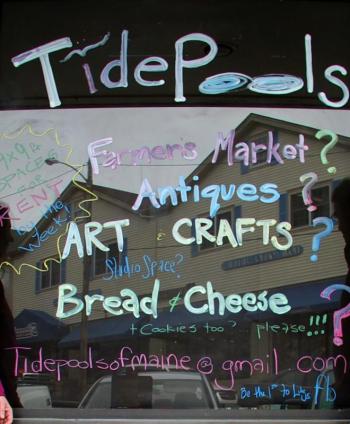 TidePools
9x9
SPACES
FOR
RENT
by the
Week!
Farmer's Market?
Antiques ?
ART & CRAFTS ?
Studio Space?
Bread & Cheese ?
+ Cookies too? please!!!
Tidepoolsofmaine@gmail.com
Be the 1st to Like us fb